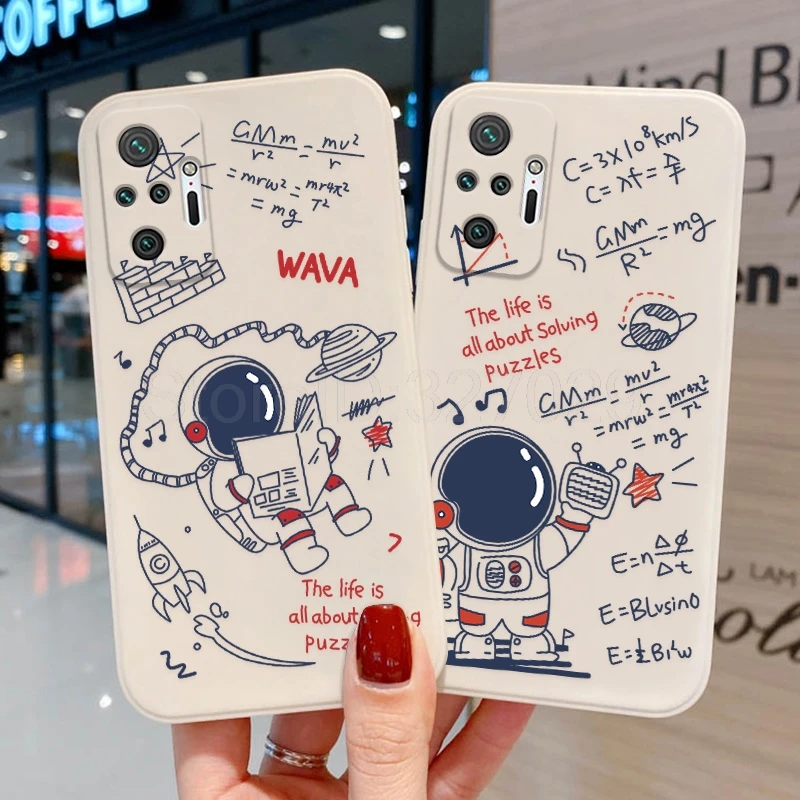 COFFEE
Mind Br
en
LAM
GMm/r² = mv²/r
= mrw² = mr4π²/T²
= mg
WAVA
The life is
all about g
puzz
C=3×10⁸km/s
C=λf=
GMm/R² = mg
The life is
all about Solving
puzzles
GMm/r² = mv²/r
= mrw² = mr4π²/T²
= mg
E=nΔϕ/Δt
E=BLvsinθ
E=½Bl²w